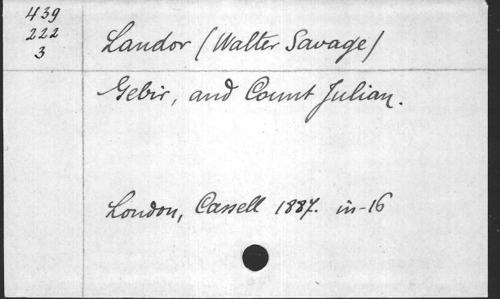 439
222
3
Landor (Walter Savage)
Gebir, and Count Julian.
London, Cassell 1887. in-16